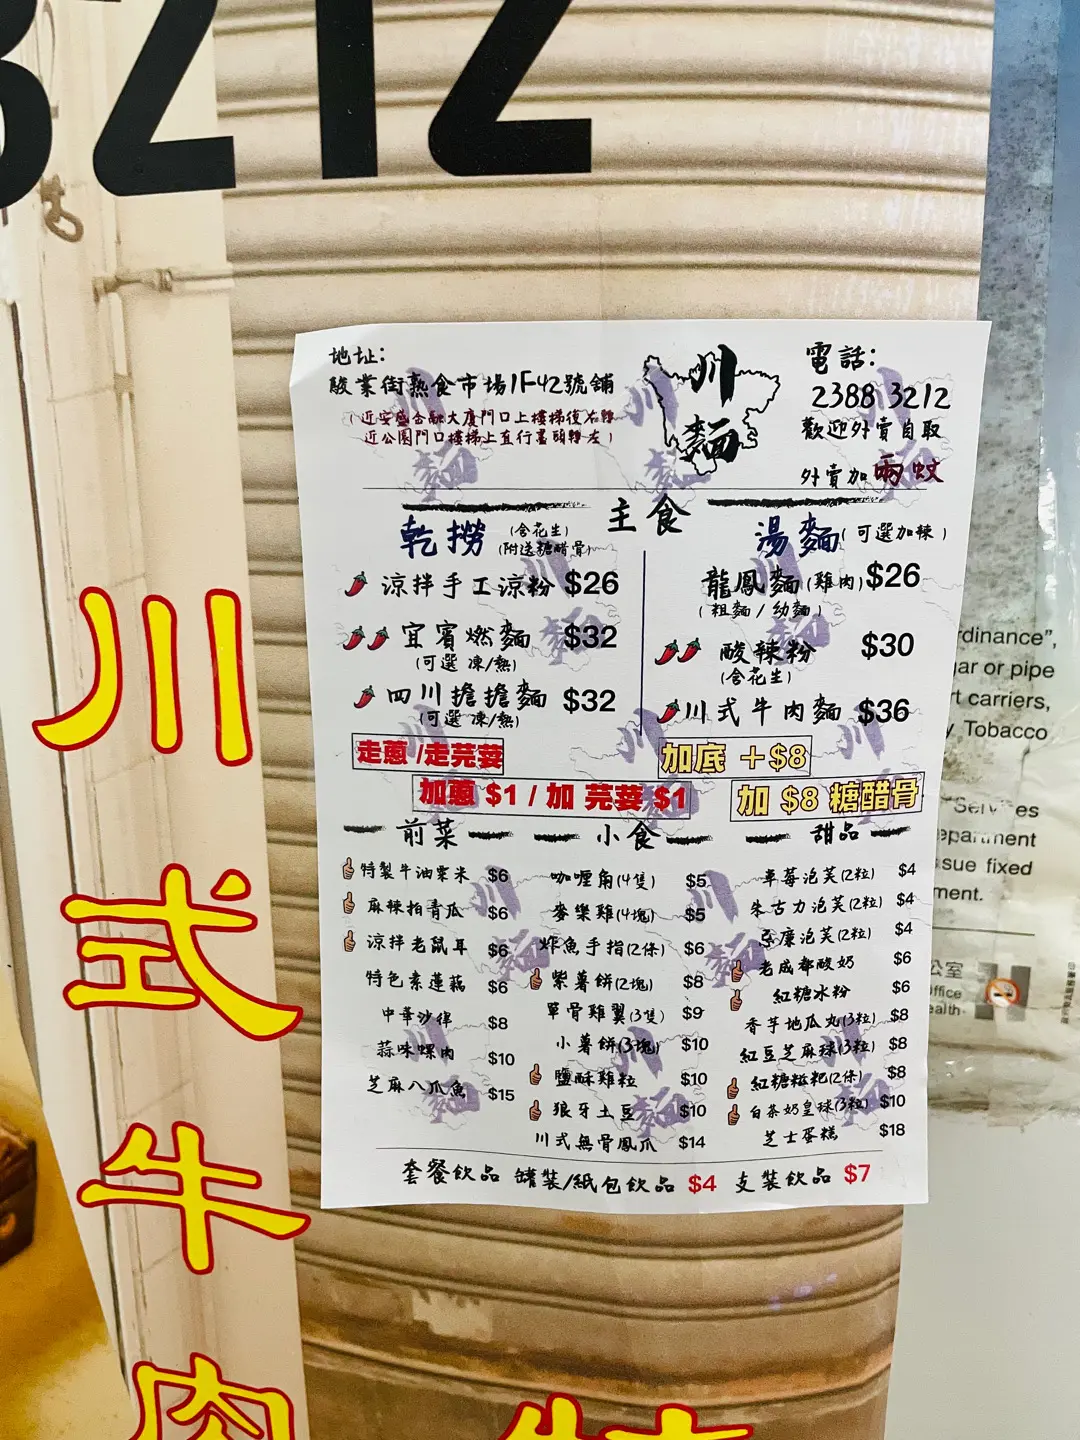 3212
地址:
駿業街熟食市場1F42號舖
(近安盛金融大廈門口上樓梯後右轉
近公園門口樓梯上直行盡頭轉左)
川麵
電話:
2388 3212
歡迎外賣自取
外賣加兩蚊
主食
乾撈 (含花生)
(附送糖醋骨)
涼拌手工涼粉 $26
宜賓燃麵 $32
(可選 凍/熱)
四川擔擔麵 $32
(可選 凍/熱)
湯麵 (可選加辣)
龍鳳麵(雞肉) $26
(粗麵/幼麵)
酸辣粉 $30
(含花生)
川式牛肉麵 $36
走蔥/走芫荽
加底 +$8
加蔥 $1 / 加 芫荽 $1
加 $8 糖醋骨
前菜
特製牛油粟米 $6
麻辣拍青瓜 $6
涼拌老鼠耳 $6
特色素蓮藕 $6
中華沙律 $8
蒜味螺肉 $10
芝麻八爪魚 $15
小食
咖喱角(4隻) $5
麥樂雞(4塊) $5
炸魚手指(2條) $6
紫薯餅(2塊) $8
單骨雞翼(3隻) $9
小薯餅(3塊) $10
鹽酥雞粒 $10
狼牙土豆 $10
川式無骨鳳爪 $14
甜品
草莓泡芙(2粒) $4
朱古力泡芙(2粒) $4
忌廉泡芙(2粒) $4
老成都酸奶 $6
紅糖冰粉 $6
香芋地瓜丸(3粒) $8
紅豆芝麻球(3粒) $8
紅糖糍粑(2條) $8
白茶奶皇球(3粒) $10
芝士蛋糕 $18
套餐飲品 罐裝/紙包飲品 $4 支裝飲品 $7
川式牛肉
rdinance",
gar or pipe
rt carriers,
y Tobacco
Services
epartment
ssue fixed
ment.
公室
ffice
ealth